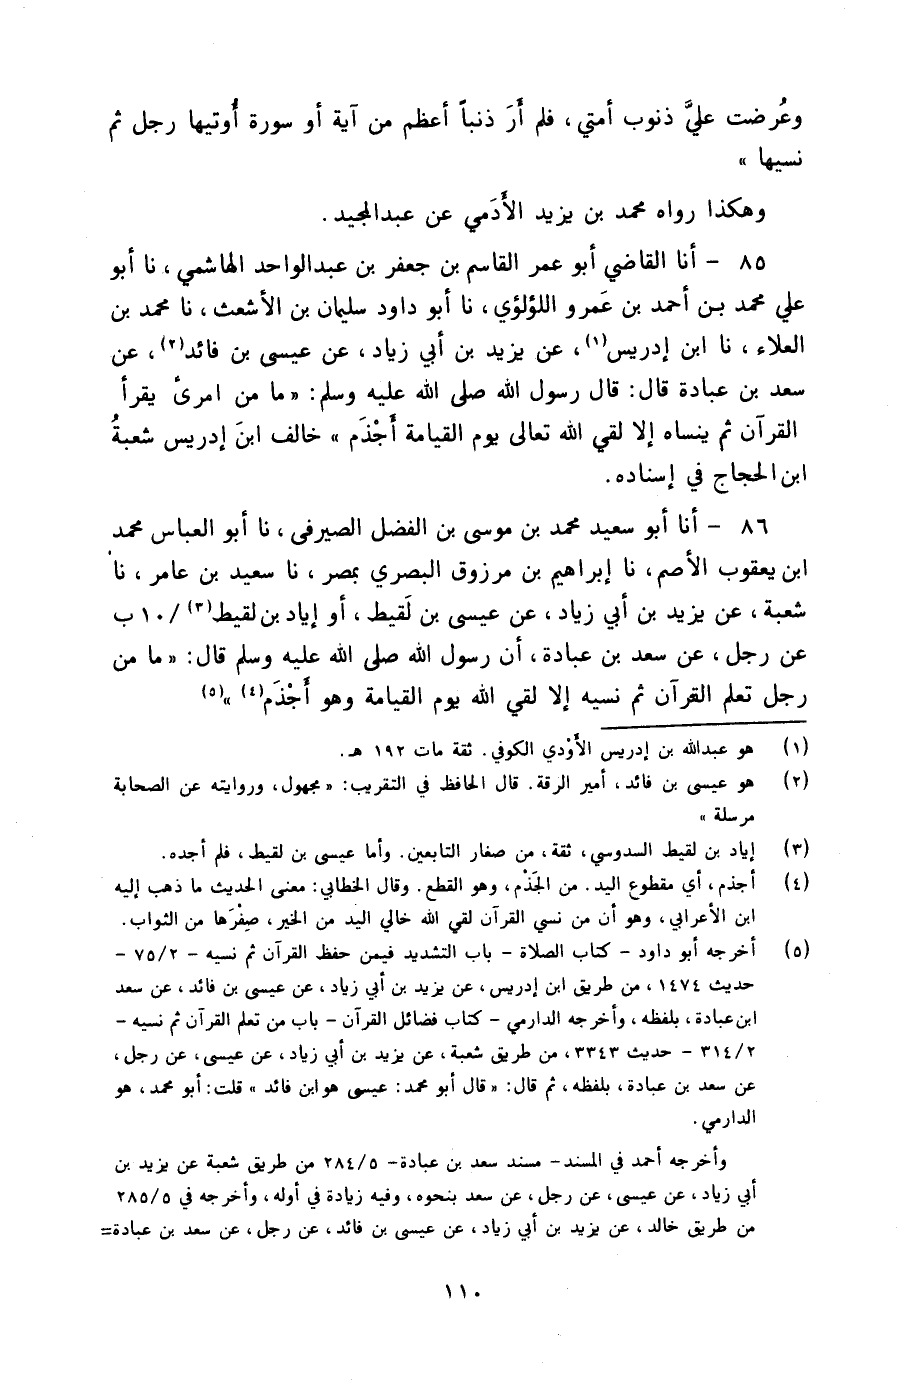 وعُرضت عليَّ ذنوب أمتي، فلم أَرَ ذنباً أعظم من آية أو سورة أُوتيها رجل ثم
نسيها »
وهكذا رواه محمد بن يزيد الأَدَمي عن عبدالمجيد.
٨٥ - أنا القاضي أبو عمر القاسم بن جعفر بن عبدالواحد الهاشمي، نا أبو
علي محمد بن أحمد بن عَمرو اللؤلؤي، نا أبو داود سليمان بن الأشعث، نا محمد بن
العلاء، نا ابن إدريس(١)، عن يزيد بن أبي زياد، عن عيسى بن فائد(٢)، عن
سعد بن عبادة قال: قال رسول الله صلى الله عليه وسلم: « ما من امرئ يقرأ
القرآن ثم ينساه إلا لقي الله تعالى يوم القيامة أَجْذَم » خالف ابنَ إدريس شعبةُ
ابن الحجاج في إسناده.
٨٦ - أنا أبو سعيد محمد بن موسى بن الفضل الصيرفى، نا أبو العباس محمد
ابن يعقوب الأصم، نا إبراهيم بن مرزوق البصري بمصر، نا سعيد بن عامر، نا
شعبة، عن يزيد بن أبي زياد، عن عيسى بن لَقيط، أو إياد بن لقيط(٣) /١٠ ب
عن رجل، عن سعد بن عبادة، أن رسول الله صلى الله عليه وسلم قال: « ما من
رجل تعلم القرآن ثم نسيه إلا لقي الله يوم القيامة وهو أَجْذَم(٤) »(٥)
(١) هو عبدالله بن إدريس الأَوْدي الكوفي. ثقة مات ١٩٢ هـ.
(٢) هو عيسى بن فائد، أمير الرقة. قال الحافظ في التقريب: « مجهول، وروايته عن الصحابة
مرسلة »
(٣) إياد بن لقيط السدوسي، ثقة، من صغار التابعين. وأما عيسى بن لقيط، فلم أجده.
(٤) أجذم، أي مقطوع اليد. من الجَذْم، وهو القطع. وقال الخطابي: معنى الحديث ما ذهب إليه
ابن الأعرابي، وهو أن من نسي القرآن لقي الله خالي اليد من الخير، صِفْرَها من الثواب.
(٥) أخرجه أبو داود - كتاب الصلاة - باب التشديد فيمن حفظ القرآن ثم نسيه - ٧٥/٢ -
حديث ١٤٧٤، من طريق ابن إدريس، عن يزيد بن أبي زياد، عن عيسى بن فائد، عن سعد
ابن عبادة، بلفظه، وأخرجه الدارمي - كتاب فضائل القرآن - باب من تعلم القرآن ثم نسيه -
٣١٤/٢ - حديث ٣٣٤٣، من طريق شعبة، عن يزيد بن أبي زياد، عن عيسى، عن رجل،
عن سعد بن عبادة، بلفظه، ثم قال: « قال أبو محمد: عيسى هو ابن فائد » قلت: أبو محمد، هو
الدارمي.
وأخرجه أحمد في المسند- مسند سعد بن عبادة- ٢٨٤/٥ من طريق شعبة عن يزيد بن
أبي زياد، عن عيسى، عن رجل، عن سعد بنحوه، وفيه زيادة في أوله، وأخرجه في ٢٨٥/٥
من طريق خالد، عن يزيد بن أبي زياد، عن عيسى بن فائد، عن رجل، عن سعد بن عبادة=
١١٠